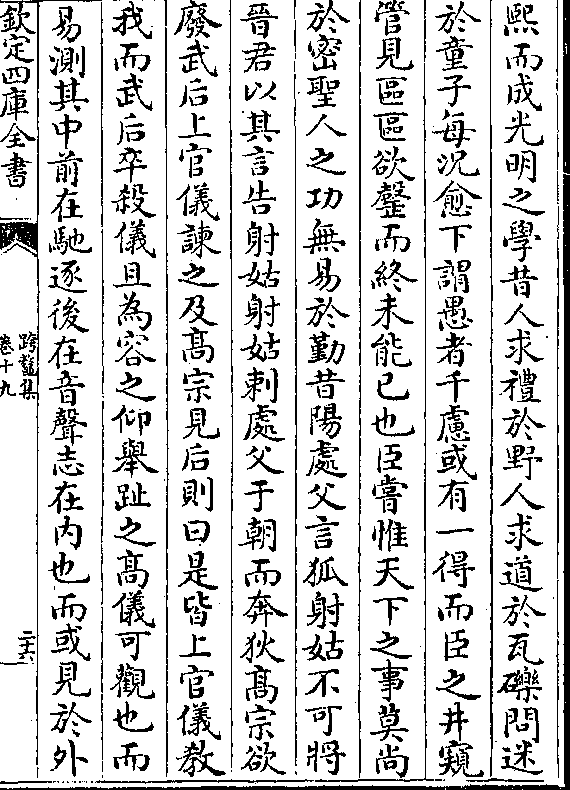 熙而成光明之學昔人求禮於野人求道於瓦礫問迷
於童子每況愈下謂愚者千慮或有一得而臣之井窺
管見區區欲罄而終未能已也臣嘗惟天下之事莫尚
於密聖人之功無易於勤昔陽處父言狐射姑不可將
晉君以其言告射姑射姑刺處父于朝而奔狄髙宗欲
廢武后上官儀諫之及髙宗見后則曰是皆上官儀教
我而武后卒殺儀且為容之仰舉趾之髙儀可觀也而
易測其中前在馳逐後在音聲志在内也而或見於外
欽定四庫全書
跨鼇集
卷十九
二十六